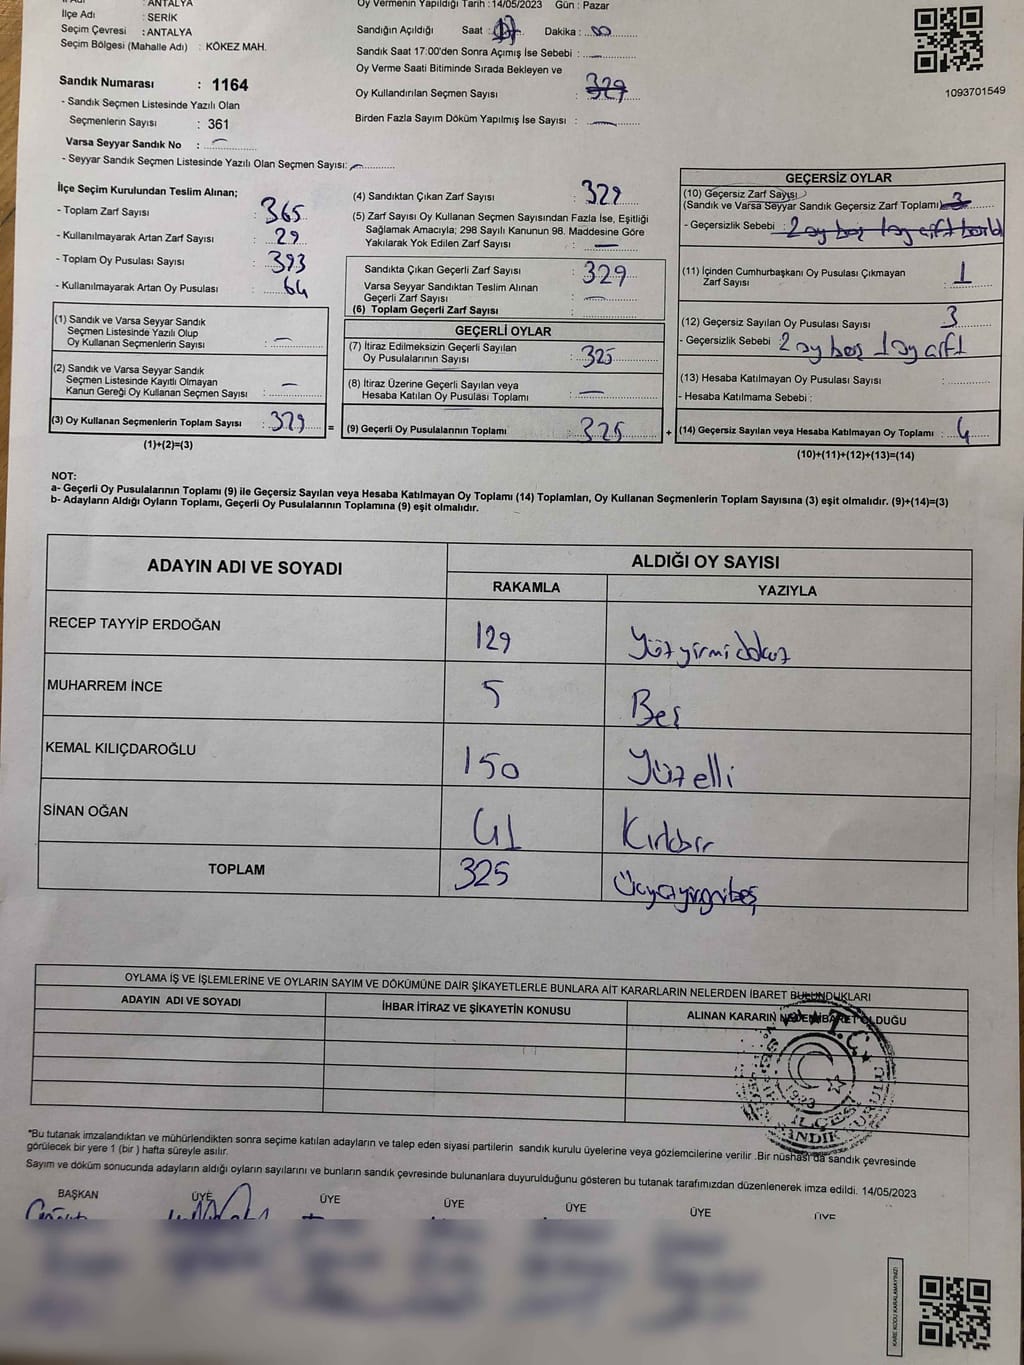 İlçe Adı : SERİK
Seçim Çevresi : ANTALYA
Seçim Bölgesi (Mahalle Adı) : KÖKEZ MAH.
Sandık Numarası : 1164
- Sandık Seçmen Listesinde Yazılı Olan
Seçmenlerin Sayısı : 361
Varsa Seyyar Sandık No :
- Seyyar Sandık Seçmen Listesinde Yazılı Olan Seçmen Sayısı:
Oy Vermenin Yapıldığı Tarih : 14/05/2023 Gün : Pazar
Sandığın Açıldığı Saat : 17 Dakika :
Sandık Saat 17:00'den Sonra Açımış İse Sebebi :
Oy Verme Saati Bitiminde Sırada Bekleyen ve
Oy Kullandırılan Seçmen Sayısı : 329
Birden Fazla Sayım Döküm Yapılmış İse Sayısı :
1093701549
İlçe Seçim Kurulundan Teslim Alınan;
- Toplam Zarf Sayısı : 365
- Kullanılmayarak Artan Zarf Sayısı : 29
- Toplam Oy Pusulası Sayısı : 393
- Kullanılmayarak Artan Oy Pusulası : 64
(1) Sandık ve Varsa Seyyar Sandık
Seçmen Listesinde Yazılı Olup
Oy Kullanan Seçmenlerin Sayısı : —
(2) Sandık ve Varsa Seyyar Sandık
Seçmen Listesinde Kayıtlı Olmayan
Kanun Gereği Oy Kullanan Seçmen Sayısı : —
(3) Oy Kullanan Seçmenlerin Toplam Sayısı : 329 =
(1)+(2)=(3)
(4) Sandıktan Çıkan Zarf Sayısı : 329
(5) Zarf Sayısı Oy Kullanan Seçmen Sayısından Fazla İse, Eşitliği
Sağlamak Amacıyla; 298 Sayılı Kanunun 98. Maddesine Göre
Yakılarak Yok Edilen Zarf Sayısı : —
Sandıkta Çıkan Geçerli Zarf Sayısı : 329
Varsa Seyyar Sandıktan Teslim Alınan
Geçerli Zarf Sayısı : —
(6) Toplam Geçerli Zarf Sayısı :
GEÇERLİ OYLAR
(7) İtiraz Edilmeksizin Geçerli Sayılan
Oy Pusulalarının Sayısı : 325
(8) İtiraz Üzerine Geçerli Sayılan veya
Hesaba Katılan Oy Pusulası Toplamı : —
(9) Geçerli Oy Pusulalarının Toplamı : 325 +
GEÇERSİZ OYLAR
(10) Geçersiz Zarf Sayısı
(Sandık ve Varsa Seyyar Sandık Geçersiz Zarf Toplamı) : 3
- Geçersizlik Sebebi : 2 oy boş 1 oy çift
(11) İçinden Cumhurbaşkanı Oy Pusulası Çıkmayan
Zarf Sayısı : 1
(12) Geçersiz Sayılan Oy Pusulası Sayısı : 3
- Geçersizlik Sebebi : 2 oy boş 1 oy çift
(13) Hesaba Katılmayan Oy Pusulası Sayısı :
- Hesaba Katılmama Sebebi :
(14) Geçersiz Sayılan veya Hesaba Katılmayan Oy Toplamı : 4
(10)+(11)+(12)+(13)=(14)
NOT:
a- Geçerli Oy Pusulalarının Toplamı (9) ile Geçersiz Sayılan veya Hesaba Katılmayan Oy Toplamı (14) Toplamları, Oy Kullanan Seçmenlerin Toplam Sayısına (3) eşit olmalıdır. (9)+(14)=(3)
b- Adayların Aldığı Oyların Toplamı, Geçerli Oy Pusulalarının Toplamına (9) eşit olmalıdır.
ADAYIN ADI VE SOYADI ALDIĞI OY SAYISI
RAKAMLA YAZIYLA
RECEP TAYYİP ERDOĞAN 129 Yüzyirmidokuz
MUHARREM İNCE 5 Beş
KEMAL KILIÇDAROĞLU 150 Yüzelli
SİNAN OĞAN 41 Kırkbir
TOPLAM 325 Üçyüzyirmibeş
OYLAMA İŞ VE İŞLEMLERİNE VE OYLARIN SAYIM VE DÖKÜMÜNE DAİR ŞİKAYETLERLE BUNLARA AİT KARARLARIN NELERDEN İBARET BULUNDUKLARI
ADAYIN ADI VE SOYADI İHBAR İTİRAZ VE ŞİKAYETİN KONUSU ALINAN KARARIN NEDEN İBARET OLDUĞU
T.C.
1923
*Bu tutanak imzalandıktan ve mühürlendikten sonra seçime katılan adayların ve talep eden siyasi partilerin sandık kurulu üyelerine veya gözlemcilerine verilir .Bir nüshası da sandık çevresinde
görülecek bir yere 1 (bir ) hafta süreyle asılır.
Sayım ve döküm sonucunda adayların aldığı oyların sayılarını ve bunların sandık çevresinde bulunanlara duyurulduğunu gösteren bu tutanak tarafımızdan düzenlenerek imza edildi. 14/05/2023
BAŞKAN ÜYE ÜYE ÜYE ÜYE ÜYE ÜYE
KARE KODU KARALAMAYINIZ!